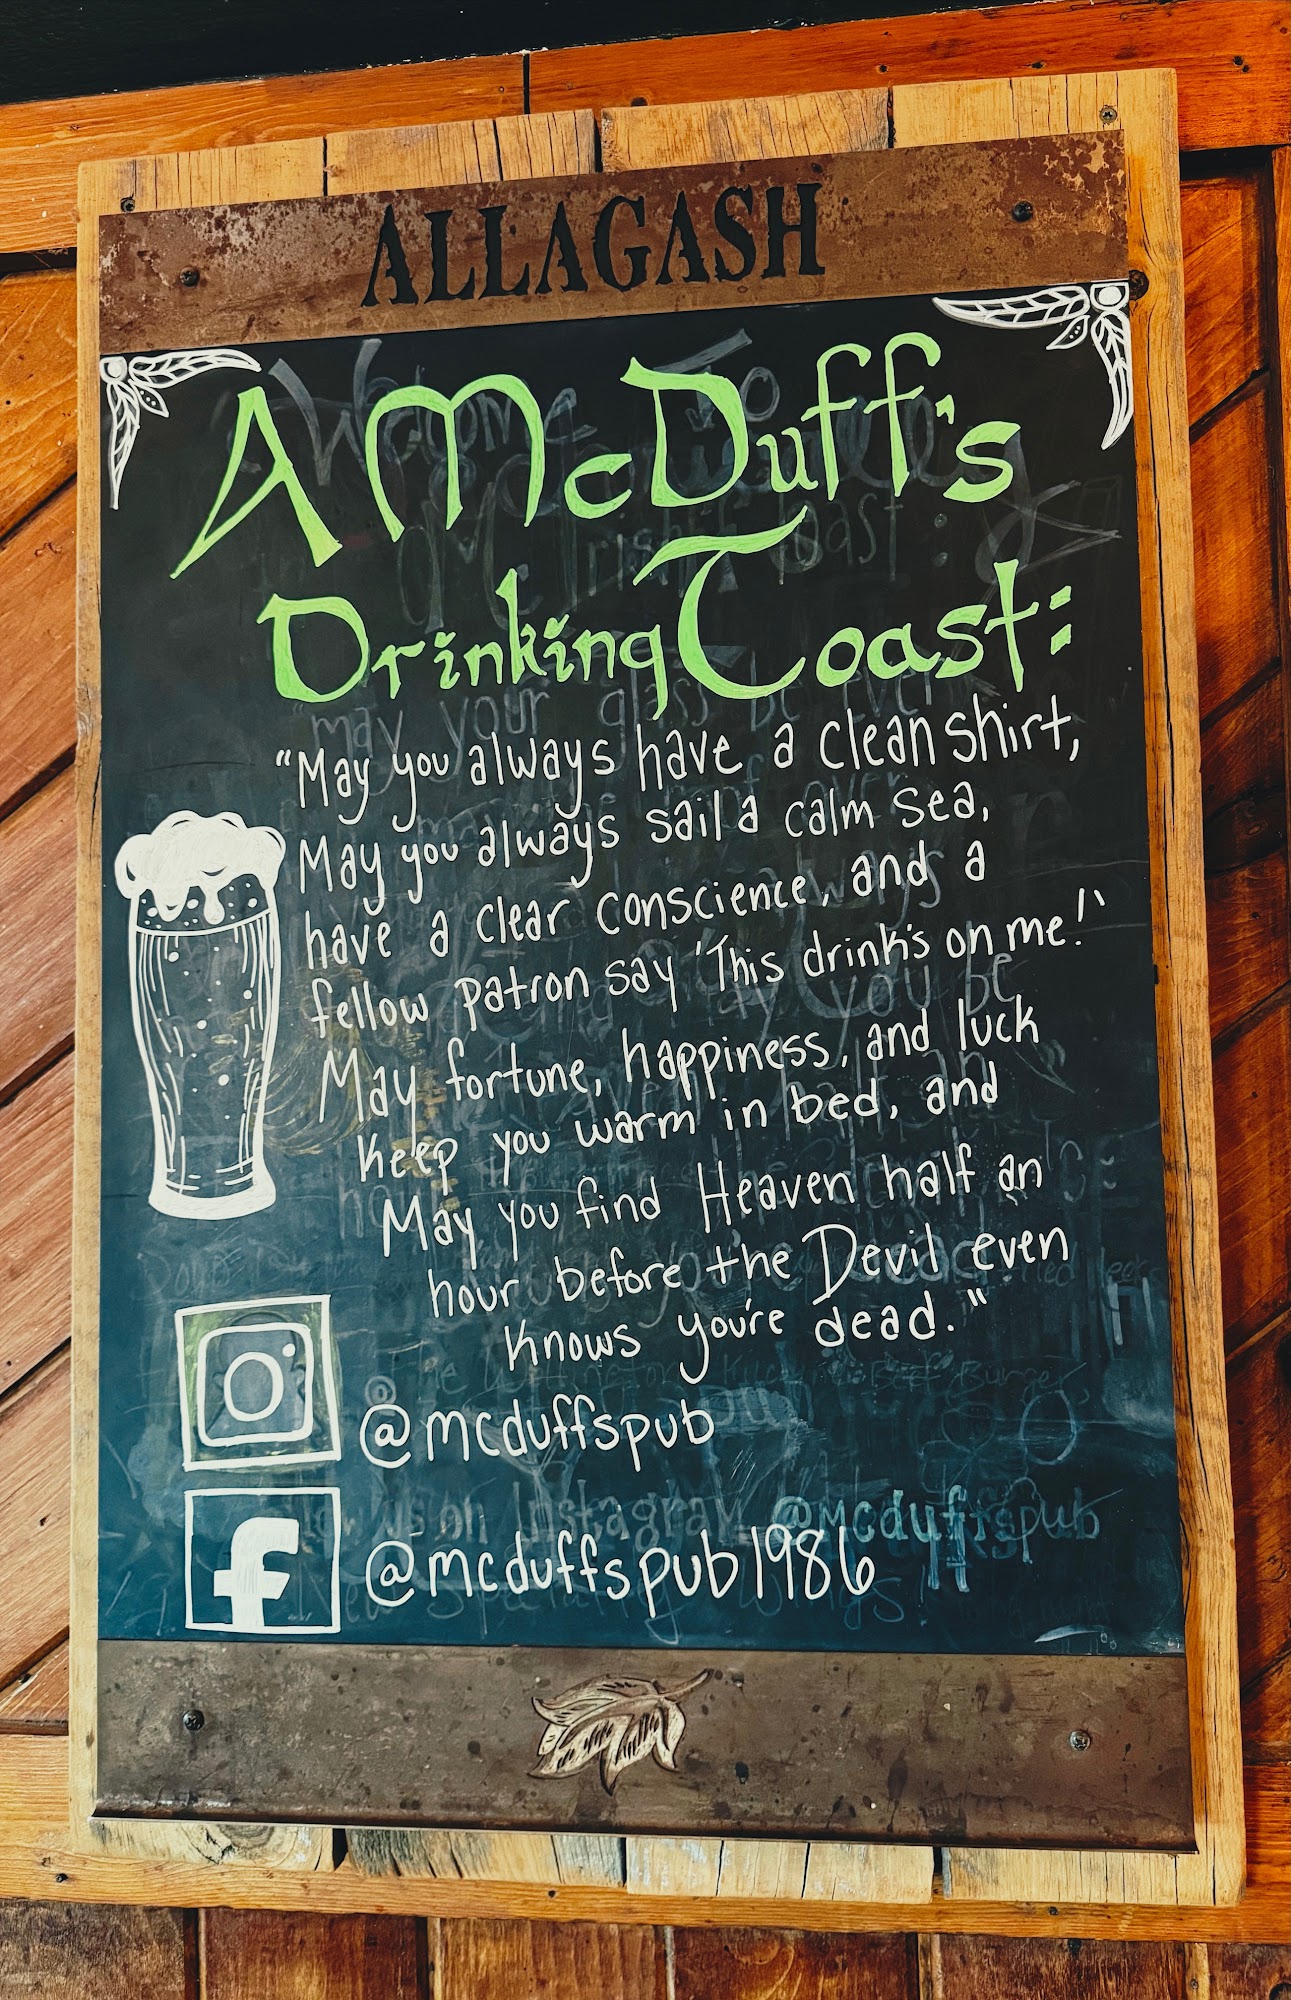 ALLAGASH
A McDuff's
Drinking Toast:
"May you always have a clean shirt,
May you always sail a calm sea,
have a clear conscience, and a
fellow patron say 'This drink's on me!'
May fortune, happiness, and luck
Keep you warm in bed, and
May you find Heaven half an
hour before the Devil even
knows you're dead."
@mcduffspub
@mcduffspub1986